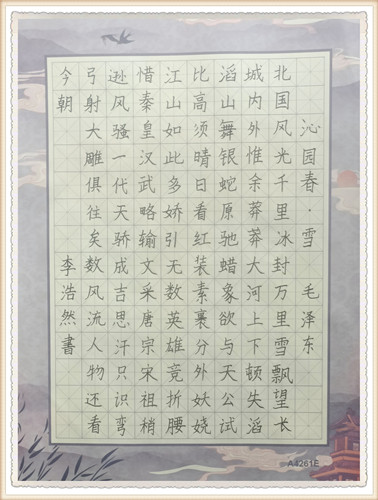 沁园春·雪 毛泽东
北国风光千里冰封万里雪飘望长
城内外惟余莽莽大河上下顿失滔
滔山舞银蛇原驰蜡象欲与天公试
比高须晴日看红装素裹分外妖娆
江山如此多娇引无数英雄竞折腰
惜秦皇汉武略输文采唐宗宋祖稍
逊风骚一代天骄成吉思汗只识弯
弓射大雕俱往矣数风流人物还看
今朝 李浩然書
A4261E